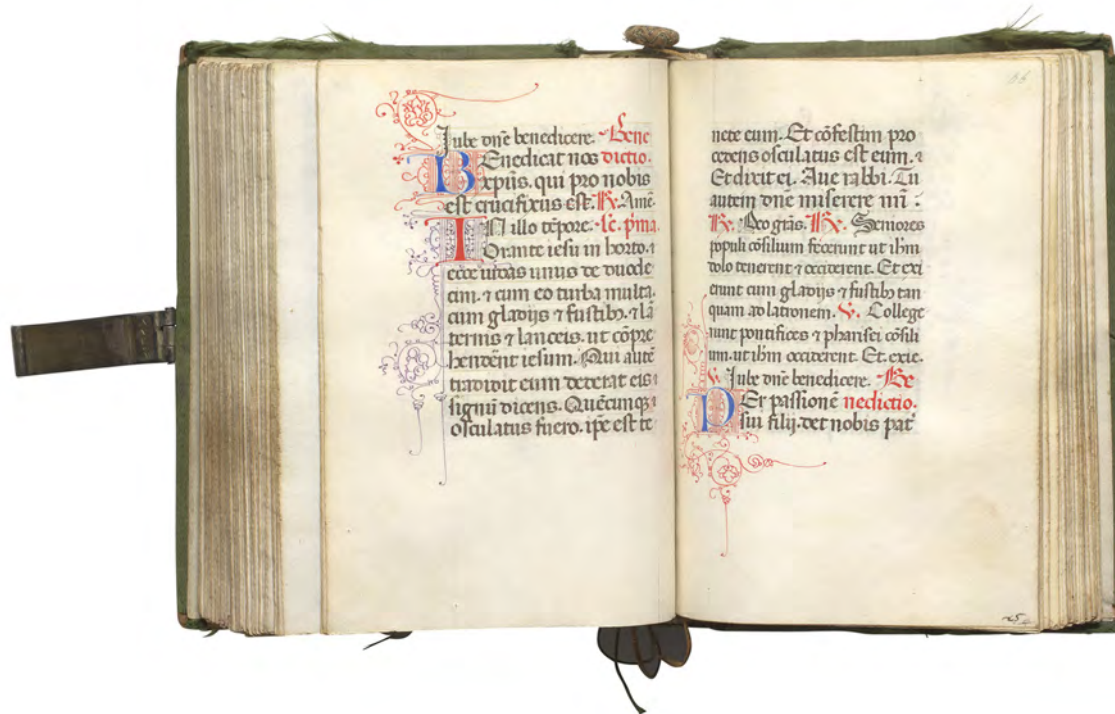 Iube dn̄e benedicere. Bene
BEnedicat nos dictio.
xp̄us. qui pro nobis
est crucifixus est. R̷. Amē.
IN illo tēpore. lc̄. p̄ma.
Orante iesu in horto. ⁊
ecce iudas unus de duode
cim. ⁊ cum eo turba multa.
cum gladijs ⁊ fustibꝫ. ⁊ lā
ternis ⁊ lanceis. ut cōpre
henderēt iesum. Qui autē
tradidit eum dederat eis
signū dicens. Quēcunqꝫ
osculatus fuero. ip̄e est te
nete eum. Et cōfestim pro
cedens osculatus est eum. ⁊
Et dixit ei. Aue rabbi. Tu
autem dn̄e miserere mī :
R̷. Deo grās. R̷. Seniores
populi cōsilium fecerunt ut ih̄m
dolo tenerent ⁊ occiderent. Et exi
erunt cum gladijs ⁊ fustibꝫ tan
quam ad latronem. V̷. College
runt pontifices ⁊ pharisei cōsili
um. ut ih̄m occiderent. Et. exie.
V̷. Iube dn̄e benedicere. Be
PEr passionē nedictio.
sui filij. det nobis pat᷑